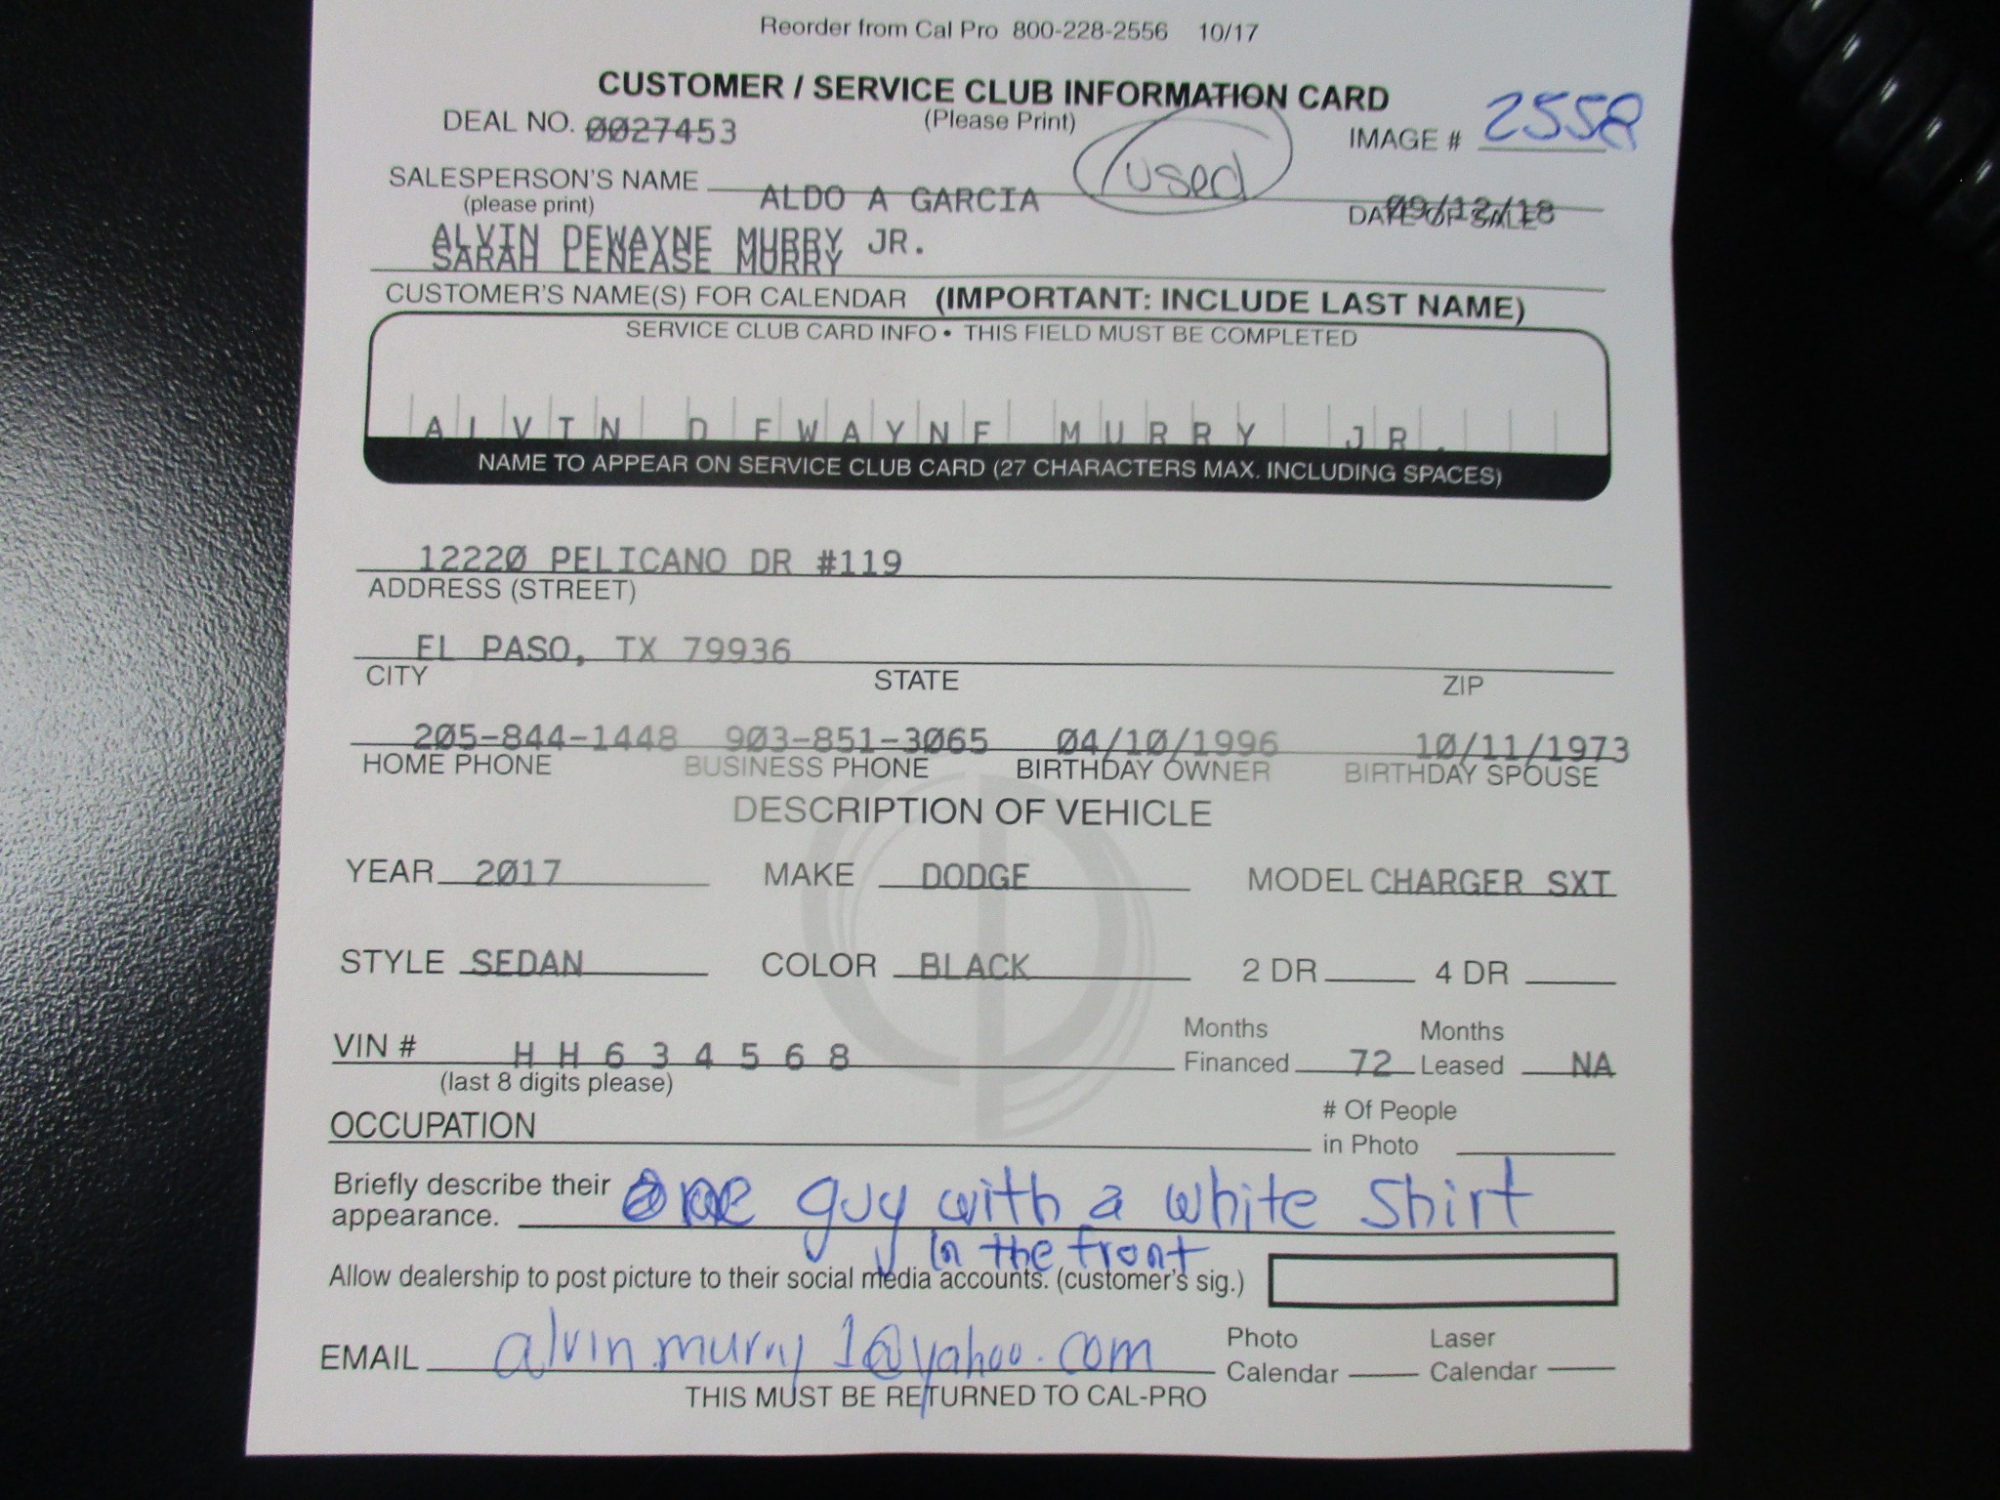 Reorder from Cal Pro 800-228-2556 10/17
CUSTOMER / SERVICE CLUB INFORMATION CARD
(Please Print)
DEAL NO. 0027453
IMAGE # 2558
used
SALESPERSON'S NAME ALDO A GARCIA
(please print)
DATE OF SALE 09/12/18
ALVIN DEWAYNE MURRY JR.
SARAH LENEASE MURRY
CUSTOMER'S NAME(S) FOR CALENDAR (IMPORTANT: INCLUDE LAST NAME)
SERVICE CLUB CARD INFO • THIS FIELD MUST BE COMPLETED
ALVIN DEWAYNE MURRY JR.
NAME TO APPEAR ON SERVICE CLUB CARD (27 CHARACTERS MAX. INCLUDING SPACES)
12220 PELICANO DR #119
ADDRESS (STREET)
EL PASO, TX 79936
CITY STATE ZIP
205-844-1448 903-851-3065 04/10/1996 10/11/1973
HOME PHONE BUSINESS PHONE BIRTHDAY OWNER BIRTHDAY SPOUSE
DESCRIPTION OF VEHICLE
YEAR 2017 MAKE DODGE MODEL CHARGER SXT
STYLE SEDAN COLOR BLACK 2 DR 4 DR
VIN # HH634568
(last 8 digits please)
Months Financed 72 Months Leased NA
OCCUPATION
# Of People in Photo
Briefly describe their appearance. One guy with a white shirt
In the front
Allow dealership to post picture to their social media accounts. (customer's sig.)
EMAIL alvin.murry1@yahoo.com
Photo Calendar Laser Calendar
THIS MUST BE RETURNED TO CAL-PRO